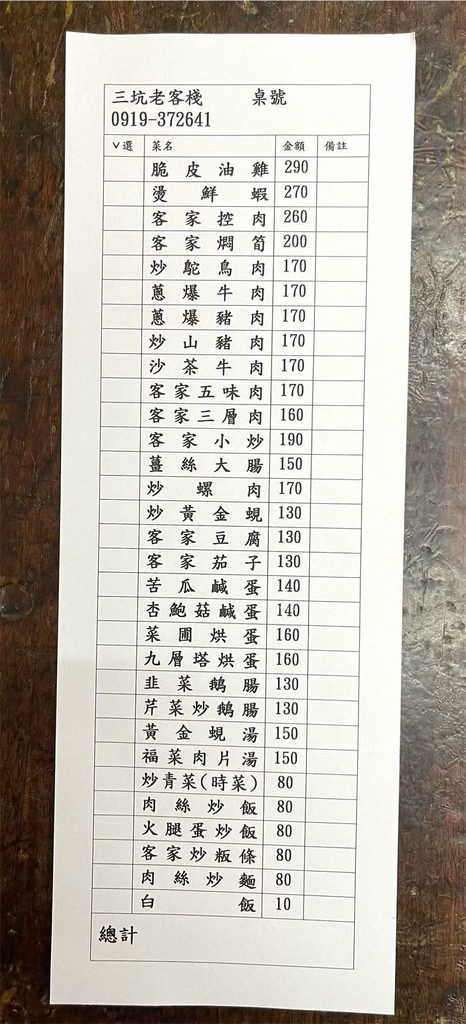 三坑老客棧 桌號
0919-372641
V選 菜名 金額 備註
脆皮油雞 290
燙鮮蝦 270
客家控肉 260
客家燜筍 200
炒鴕鳥肉 170
蔥爆牛肉 170
蔥爆豬肉 170
炒山豬肉 170
沙茶牛肉 170
客家五味肉 170
客家三層肉 160
客家小炒 190
薑絲大腸 150
炒螺肉 170
炒黃金蜆 130
客家豆腐 130
客家茄子 130
苦瓜鹹蛋 140
杏鮑菇鹹蛋 140
菜圃烘蛋 160
九層塔烘蛋 160
韭菜鵝腸 130
芹菜炒鵝腸 130
黃金蜆湯 150
福菜肉片湯 150
炒青菜(時菜) 80
肉絲炒飯 80
火腿蛋炒飯 80
客家炒粄條 80
肉絲炒麵 80
白飯 10
總計